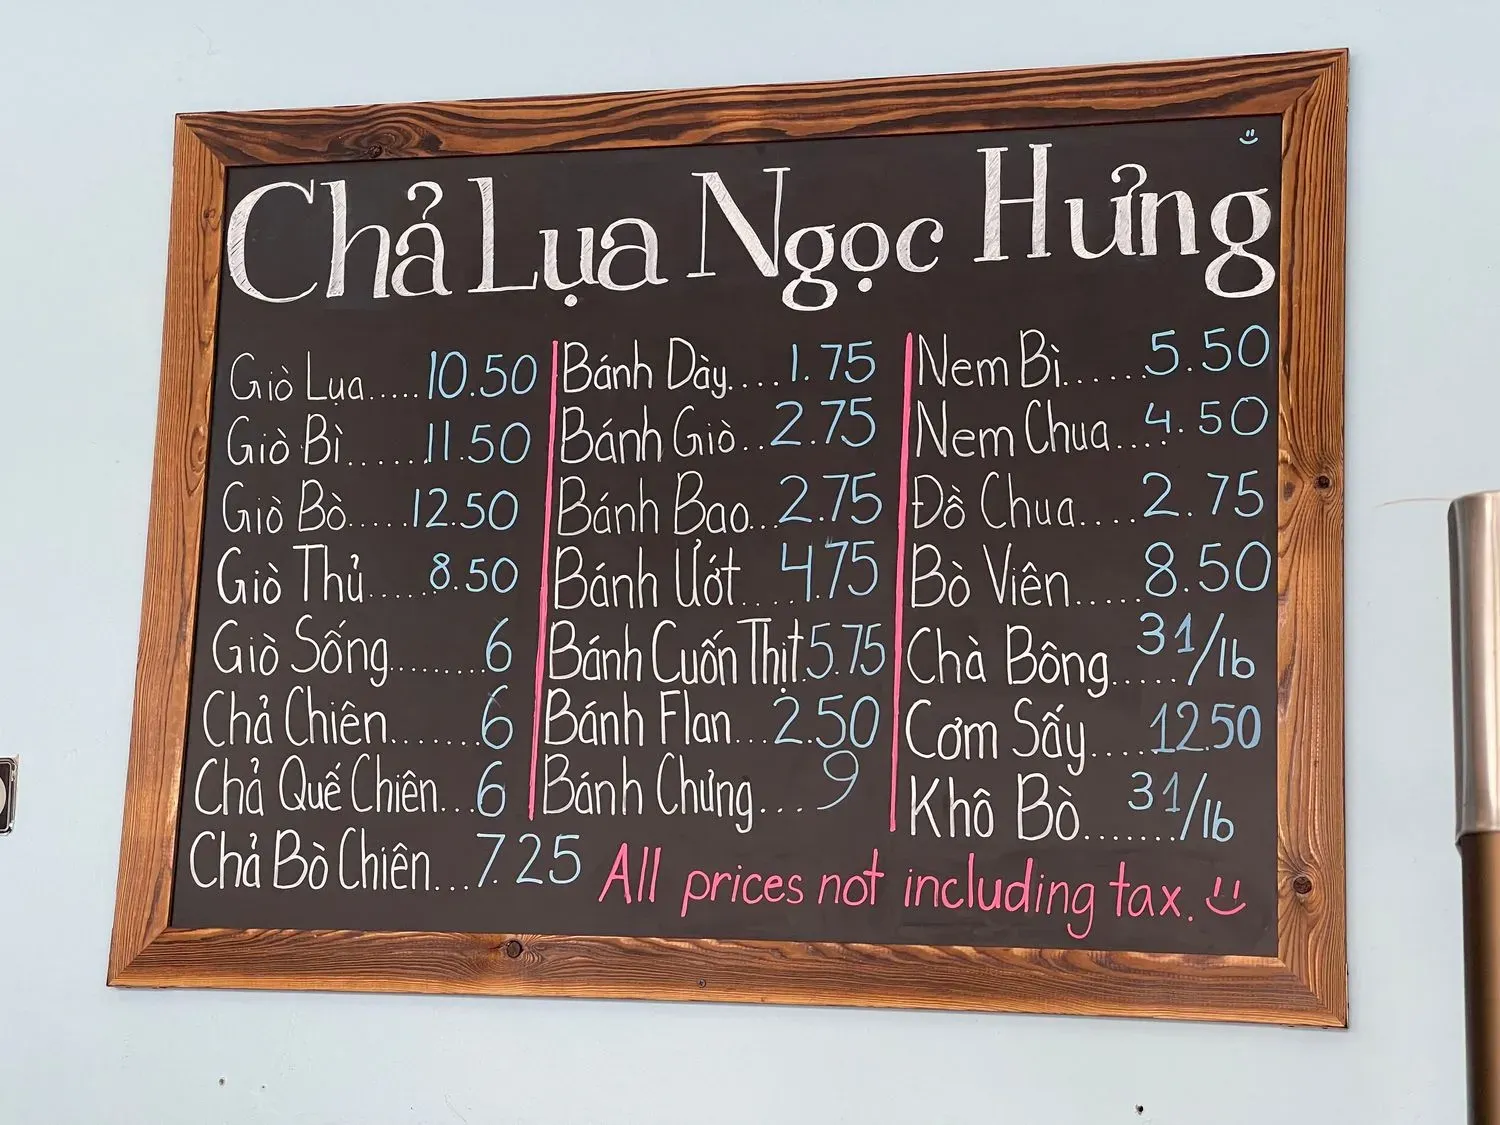 Chả Lụa Ngọc Hưng
Giò Lụa.....10.50
Giò Bì......11.50
Giò Bò.....12.50
Giò Thủ......8.50
Giò Sống........6
Chả Chiên.......6
Chả Quế Chiên...6
Chả Bò Chiên...7.25
Bánh Dày....1.75
Bánh Giò..2.75
Bánh Bao...2.75
Bánh Ướt....4.75
Bánh Cuốn Thịt.5.75
Bánh Flan...2.50
Bánh Chưng...9
Nem Bì......5.50
Nem Chua....4.50
Đồ Chua....2.75
Bò Viên.....8.50
Chà Bông.....31/lb
Cơm Sấy....12.50
Khô Bò.......31/lb
All prices not including tax.